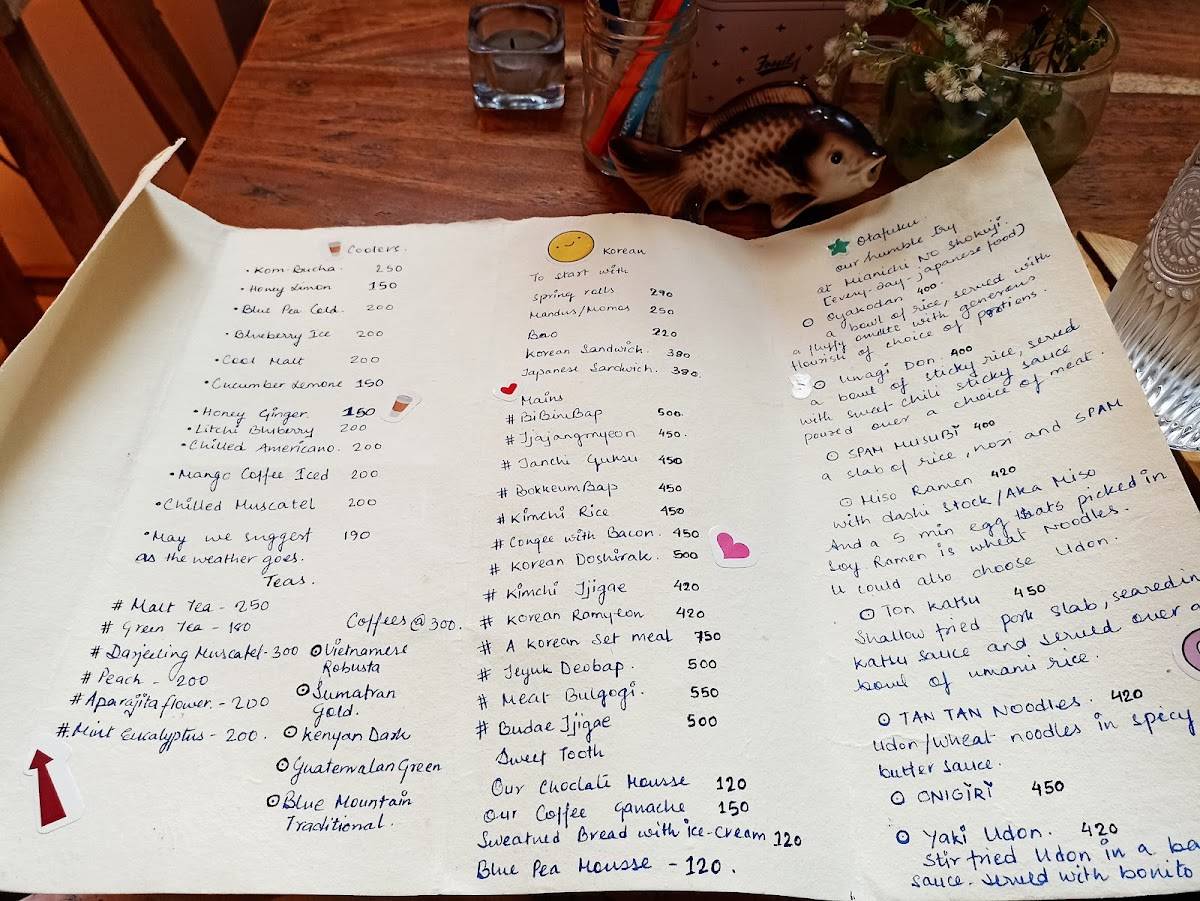 Coolers.
• Kom-Bucha. 250
• Honey Limon 150
• Blue Pea Cold. 200
• Blueberry Ice 200
• Cool Malt 200
• Cucumber Lemone 150
• Honey Ginger. 150
• Litchi Bluberry 200
• Chilled Americano. 200
• Mango Coffee Iced 200
• Chilled Muscatel 200
• May we suggest 190
as the weather goes.
Teas.
# Malt Tea - 250
# Green Tea - 180
# Darjeeling Muscatel - 300
# Peach - 200
# Aparajita flower. - 200
# Mint Eucalyptus - 200.
Coffees @ 300.
Vietnamese
Robusta
Sumatran
Gold.
Kenyan Dark
Guatemalan Green
Blue Mountain
Traditional.
Korean
To start with
Spring rolls 290
Mandus/Momos 250
Bao 220
Korean Sandwich. 380
Japanese Sandwich. 380.
Mains
# BiBimBap 500.
# Jjajangmyeon 450.
# Janchi Guksu 450
# BokkeumBap 450
# Kimchi Rice 450
# Congee with Bacon. 450
# Korean Doshirak. 500
# Kimchi Jjigae 420
# Korean Ramyeon 420
# A korean set meal 750
# Jeyuk Deobap. 500
# Meat Bulgogi. 550
# Budae Jjigae 500
Sweet Tooth
Our Choclate Mousse 120
Our Coffee ganache 150
Sweatned Bread with ice-cream 120
Blue Pea Mousse - 120.
Otafuku.
our humble by
at Mianichi No Shokuji.
[every-day-japanese food)
Oyakodan 400.
a bowl of rice, served with
a fluffy omlette with generous
flourish of choice of portions.
Unagi Don. 400
a bowl of sticky rice, served
with sweet chili sticky sauce
poured over a choice of meat.
SPAM MUSUBI 400
a slab of rice, nori and SPAM
Miso Ramen 420
with dashi stock/Aka Miso
And a 5 min egg thats picked in
Soy Ramen is wheat Noodles.
U could also choose Udon.
Ton Katsu 450
Shallow fried pork slab, seared in
katsu sauce and served over a
bowl of umami rice.
TAN TAN NOODLES. 420
Udon/wheat noodles in spicy
butter sauce.
ONIGIRI 450
Yaki Udon. 420
Stir fried Udon in a
sauce. served with bonito